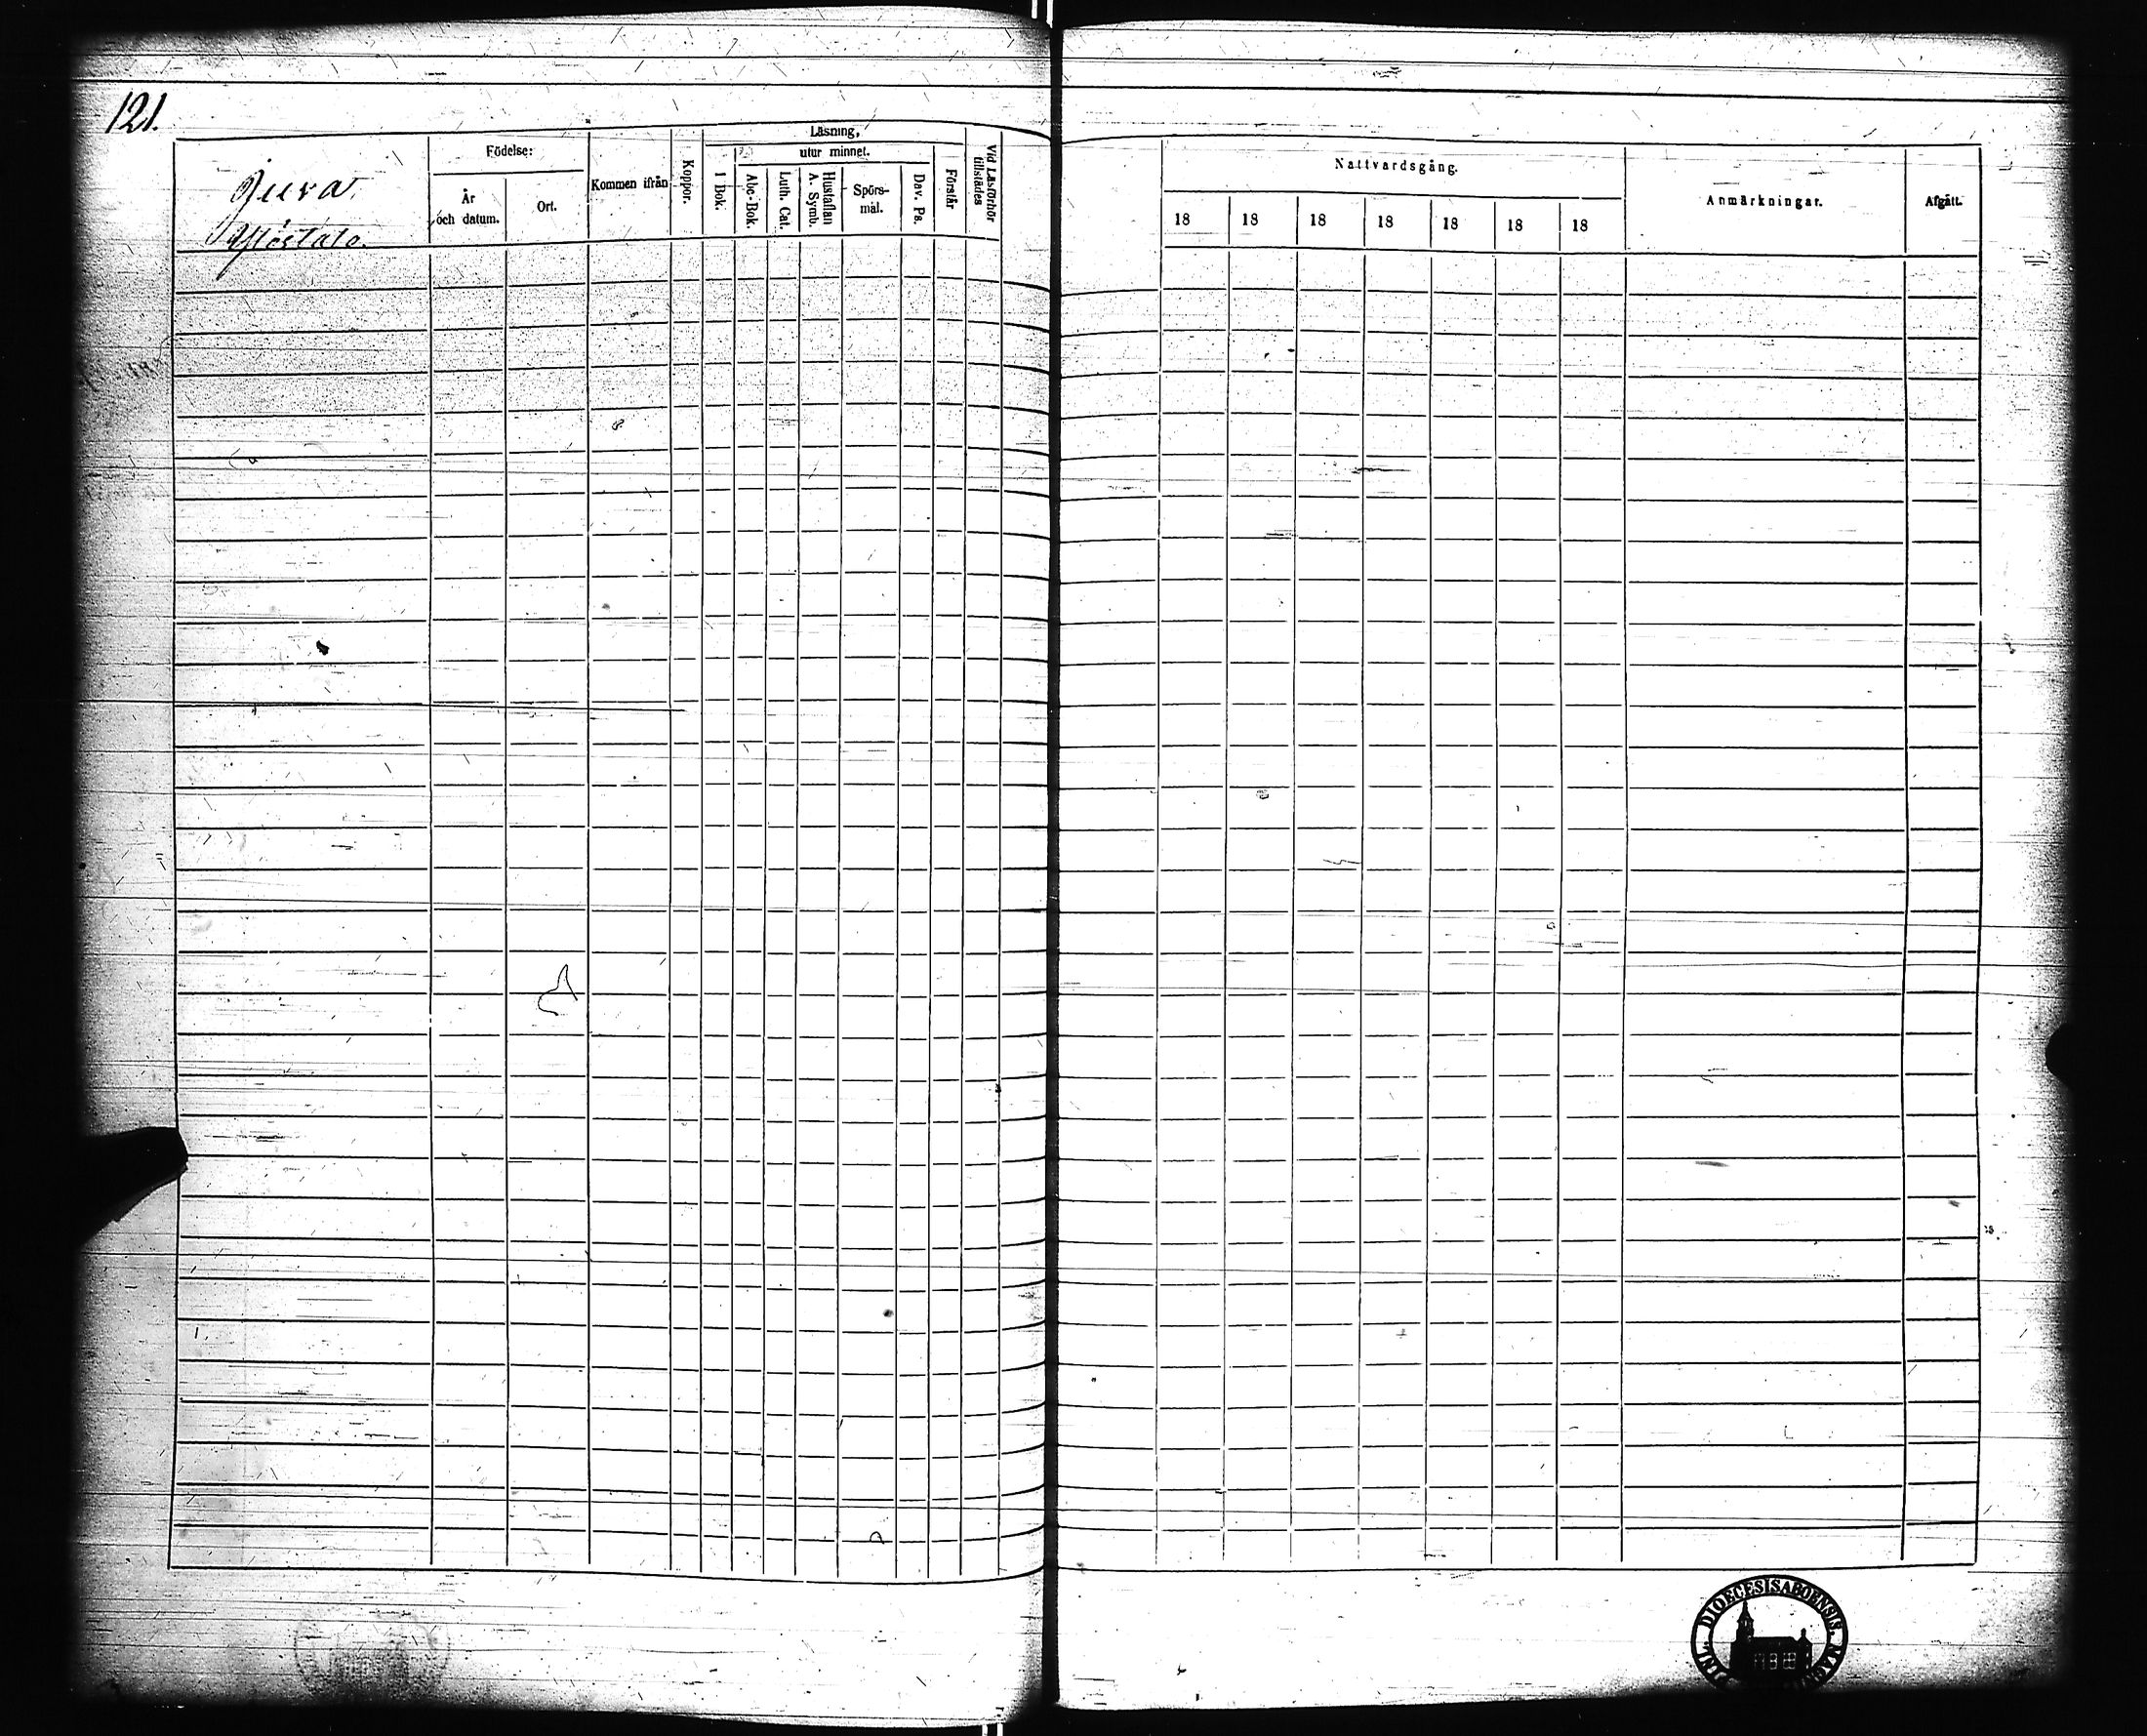 121.
Juva
Yöstalo.
Födelse:
År
och datum.
Ort.
Kommen ifrån
Koppor.
Läsning,
utur minnet.
1 Bok.
Abc-Bok.
Luth. Cat.
Hustaflan
A. Symb.
Spörs-
mål.
Dav. Ps.
Förstår
Vid Läsförhör
tillstädes
Nattvardsgång.
18 18 18 18 18 18 18
Anmärkningar.
Afgått.
DIOECESIS ABOENSIS.